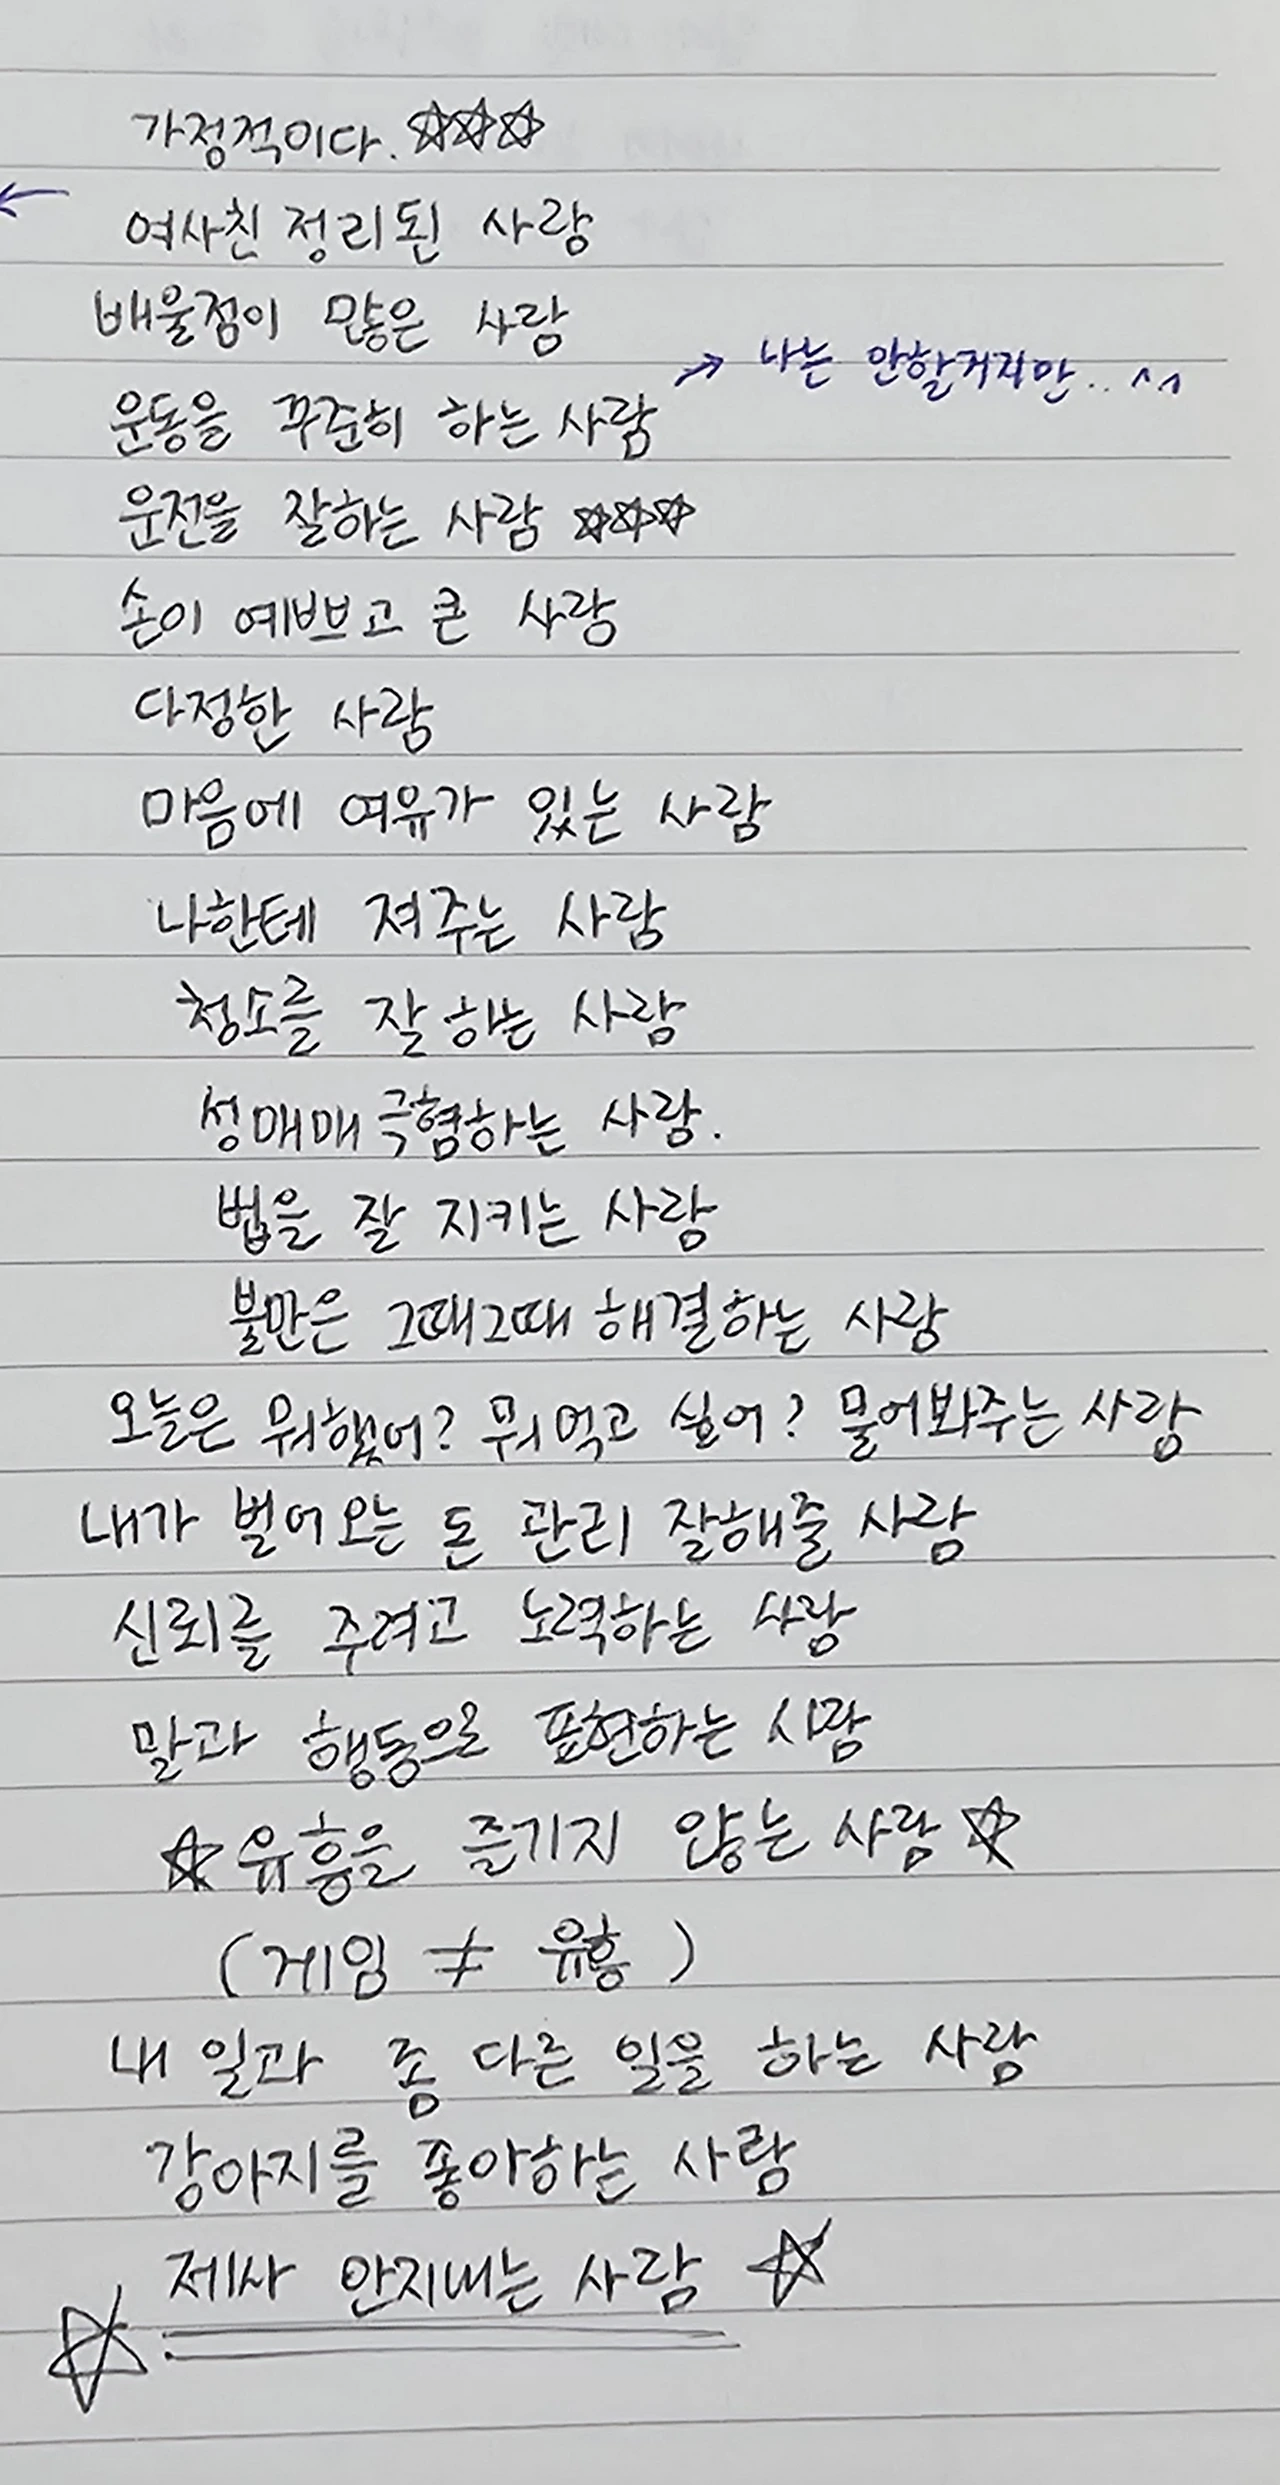 가정적이다. ☆☆☆
여사친 정리된 사람
배울점이 많은 사람
→ 나는 안할거지만.. ^^
운동을 꾸준히 하는 사람
운전을 잘하는 사람 ☆☆☆
손이 예쁘고 큰 사람
다정한 사람
마음에 여유가 있는 사람
나한테 져주는 사람
청소를 잘 하는 사람
성매매 극혐하는 사람.
법을 잘 지키는 사람
불만은 그때그때 해결하는 사람
오늘은 뭐했어? 뭐먹고 싶어? 물어봐주는 사람
내가 벌어오는 돈 관리 잘해줄 사람
신뢰를 주려고 노력하는 사람
말과 행동으로 표현하는 사람
☆유흥을 즐기지 않는 사람☆
(게임 ≠ 유흥)
내 일과 좀 다른 일을 하는 사람
강아지를 좋아하는 사람
☆ 제사 안지내는 사람 ☆